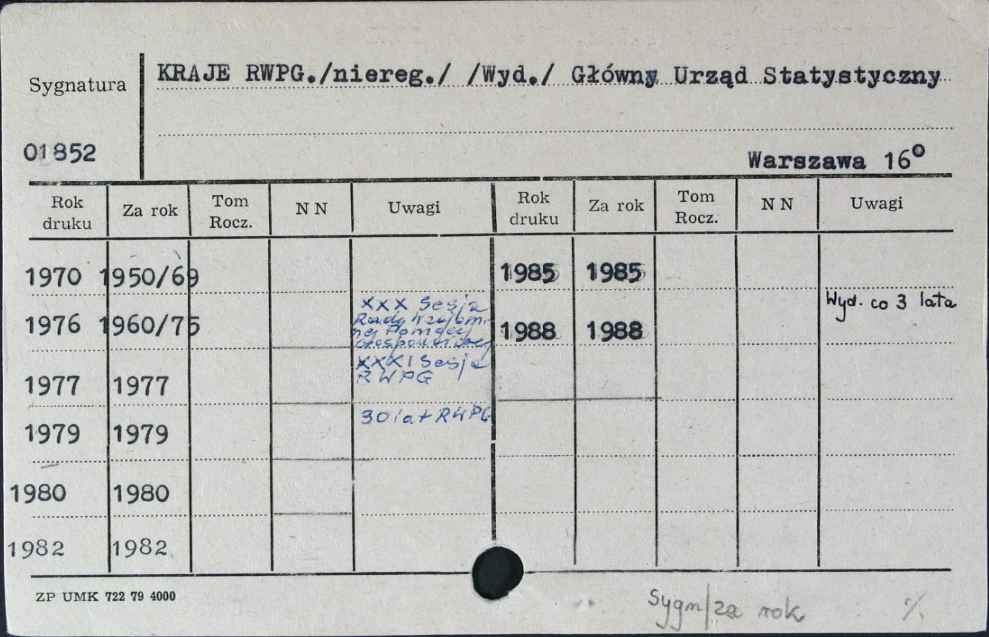 Sygnatura
KRAJE RWPG./niereg./ /Wyd./ Główny Urząd Statystyczny
01852
Warszawa 16°
Rok druku Za rok Tom Rocz. N N Uwagi Rok druku Za rok Tom Rocz. N N Uwagi
1970 1950/69 1985 1985
XXX Sesja Wyd. co 3 lata
1976 1960/75 Rady Wzajem- 1988 1988
nej Pomocy
XXXI Sesja
1977 1977 RWPG
30 lat RWPG
1979 1979
1980 1980
1982 1982
ZP UMK 722 79 4000
Sygn/za rok